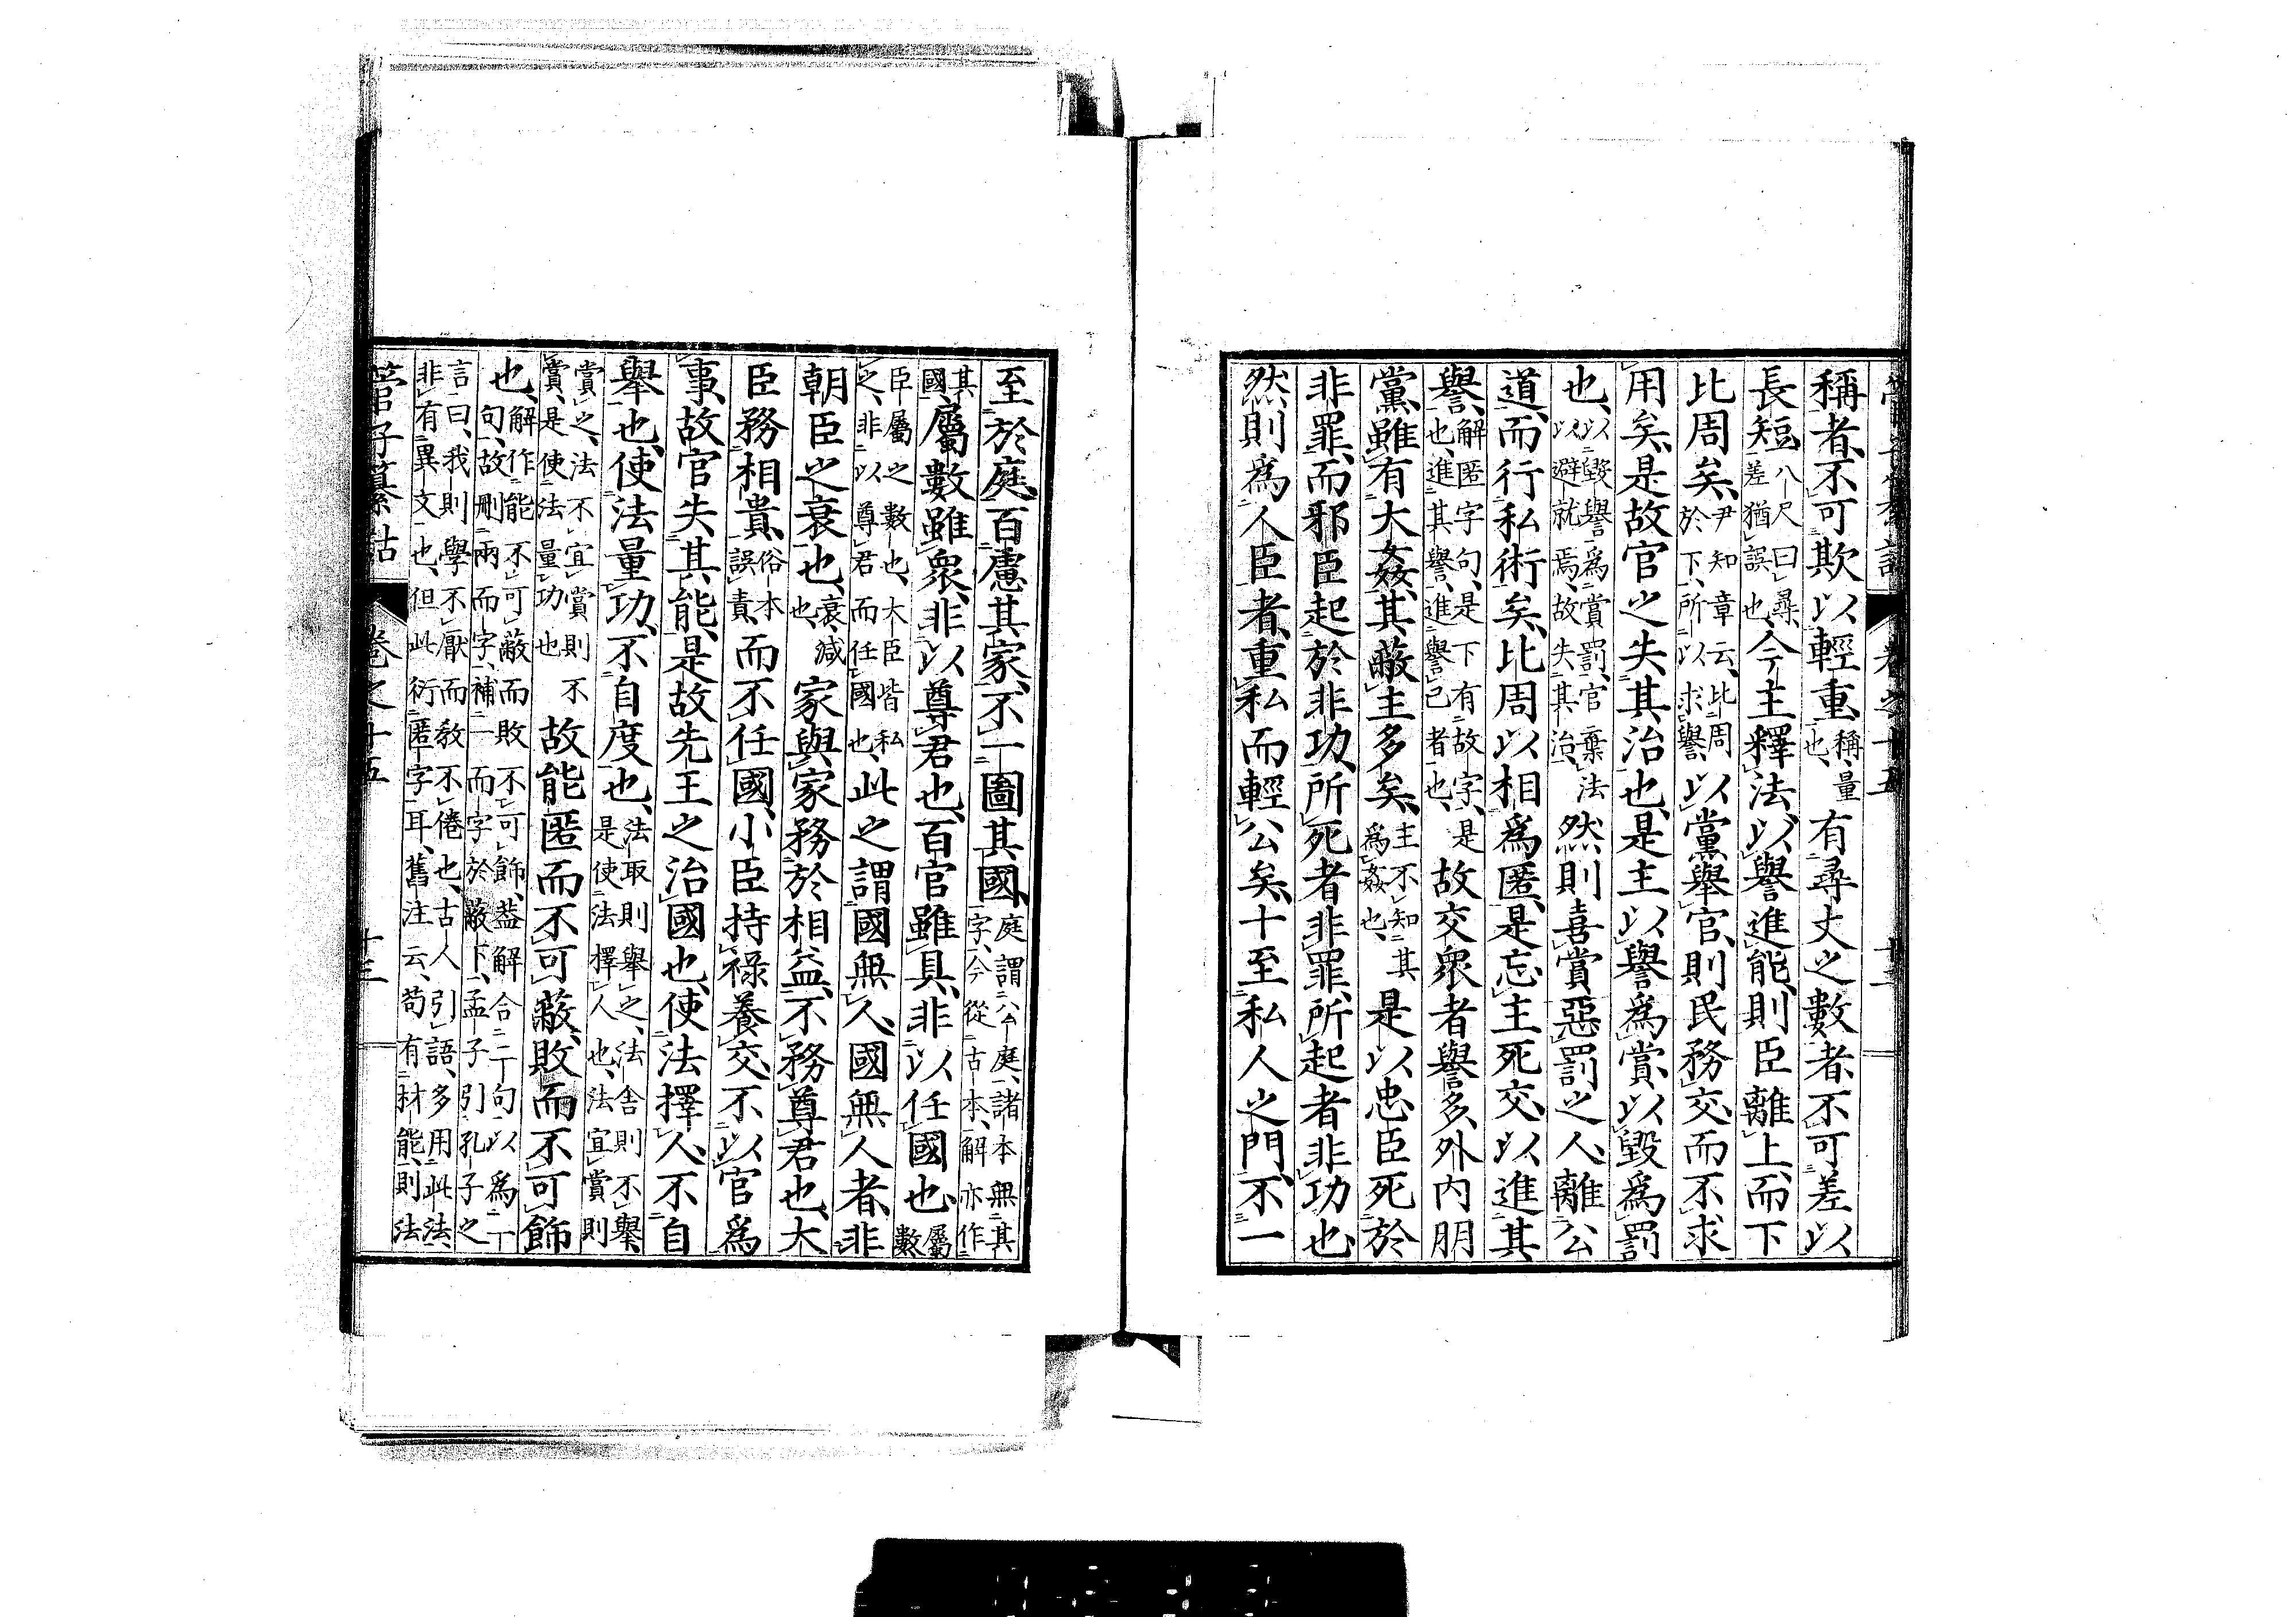 稱者、不可欺以輕重、稱、量也、有尋丈之數者、不可差以
長短、八尺曰尋、差猶誤也、今主釋法、以譽進能、則臣離上、而下
比周矣、尹知章云、比周於下、所以求譽、以黨舉官、則民務交、而不求
用矣、是故官之失其治也、是主以譽爲賞、以毀爲罰
也、以毀譽爲賞罰、官棄法以避就焉、故失其治、然則喜賞惡罰之人、離公
道、而行私術矣、比周以相爲匿、是忘主死交、以進其
譽、解匿字句、是下有故字、是也、進其譽、進譽己者也、故交衆者譽多、外内朋
黨、雖有大姦、其蔽主多矣、主不知其爲姦也、是以忠臣死於
非罪、而邪臣起於非功、所死者非罪、所起者非功也、
然則爲人臣者、重私而輕公矣、十至私人之門、不一
至於庭、百慮其家、不一圖其國、庭謂公庭、諸本無其字、今從古本、解亦作
其國、屬數雖衆、非以尊君也、百官雖具、非以任國也、屬數
臣屬之數也、大臣皆私之、非以尊君而任國也、此之謂國無人、國無人者、非
朝臣之衰也、衰、減也、家與家務於相益、不務尊君也、大
臣務相貴、俗本誤責、而不任國、小臣持祿養交、不以官爲
事、故官失其能、是故先王之治國也、使法擇人、不自
舉也、使法量功、不自度也、法取則舉之、法舍則不舉、是使法擇人也、法宜賞則
賞之、法不宜賞則不賞、是使法量功也、故能匿而不可蔽、敗而不可飾
也、解作能不可蔽而敗不可飾、蓋解合二句以爲一句、故刪兩而字、補一而字於蔽下、孟子引孔子之
言曰、我則學不厭而敎不倦也、古人引語、多用此法、非有異文也、但此衍匿字耳、舊注云、苟有材能、則法
管子纂詁 卷之十五 十三